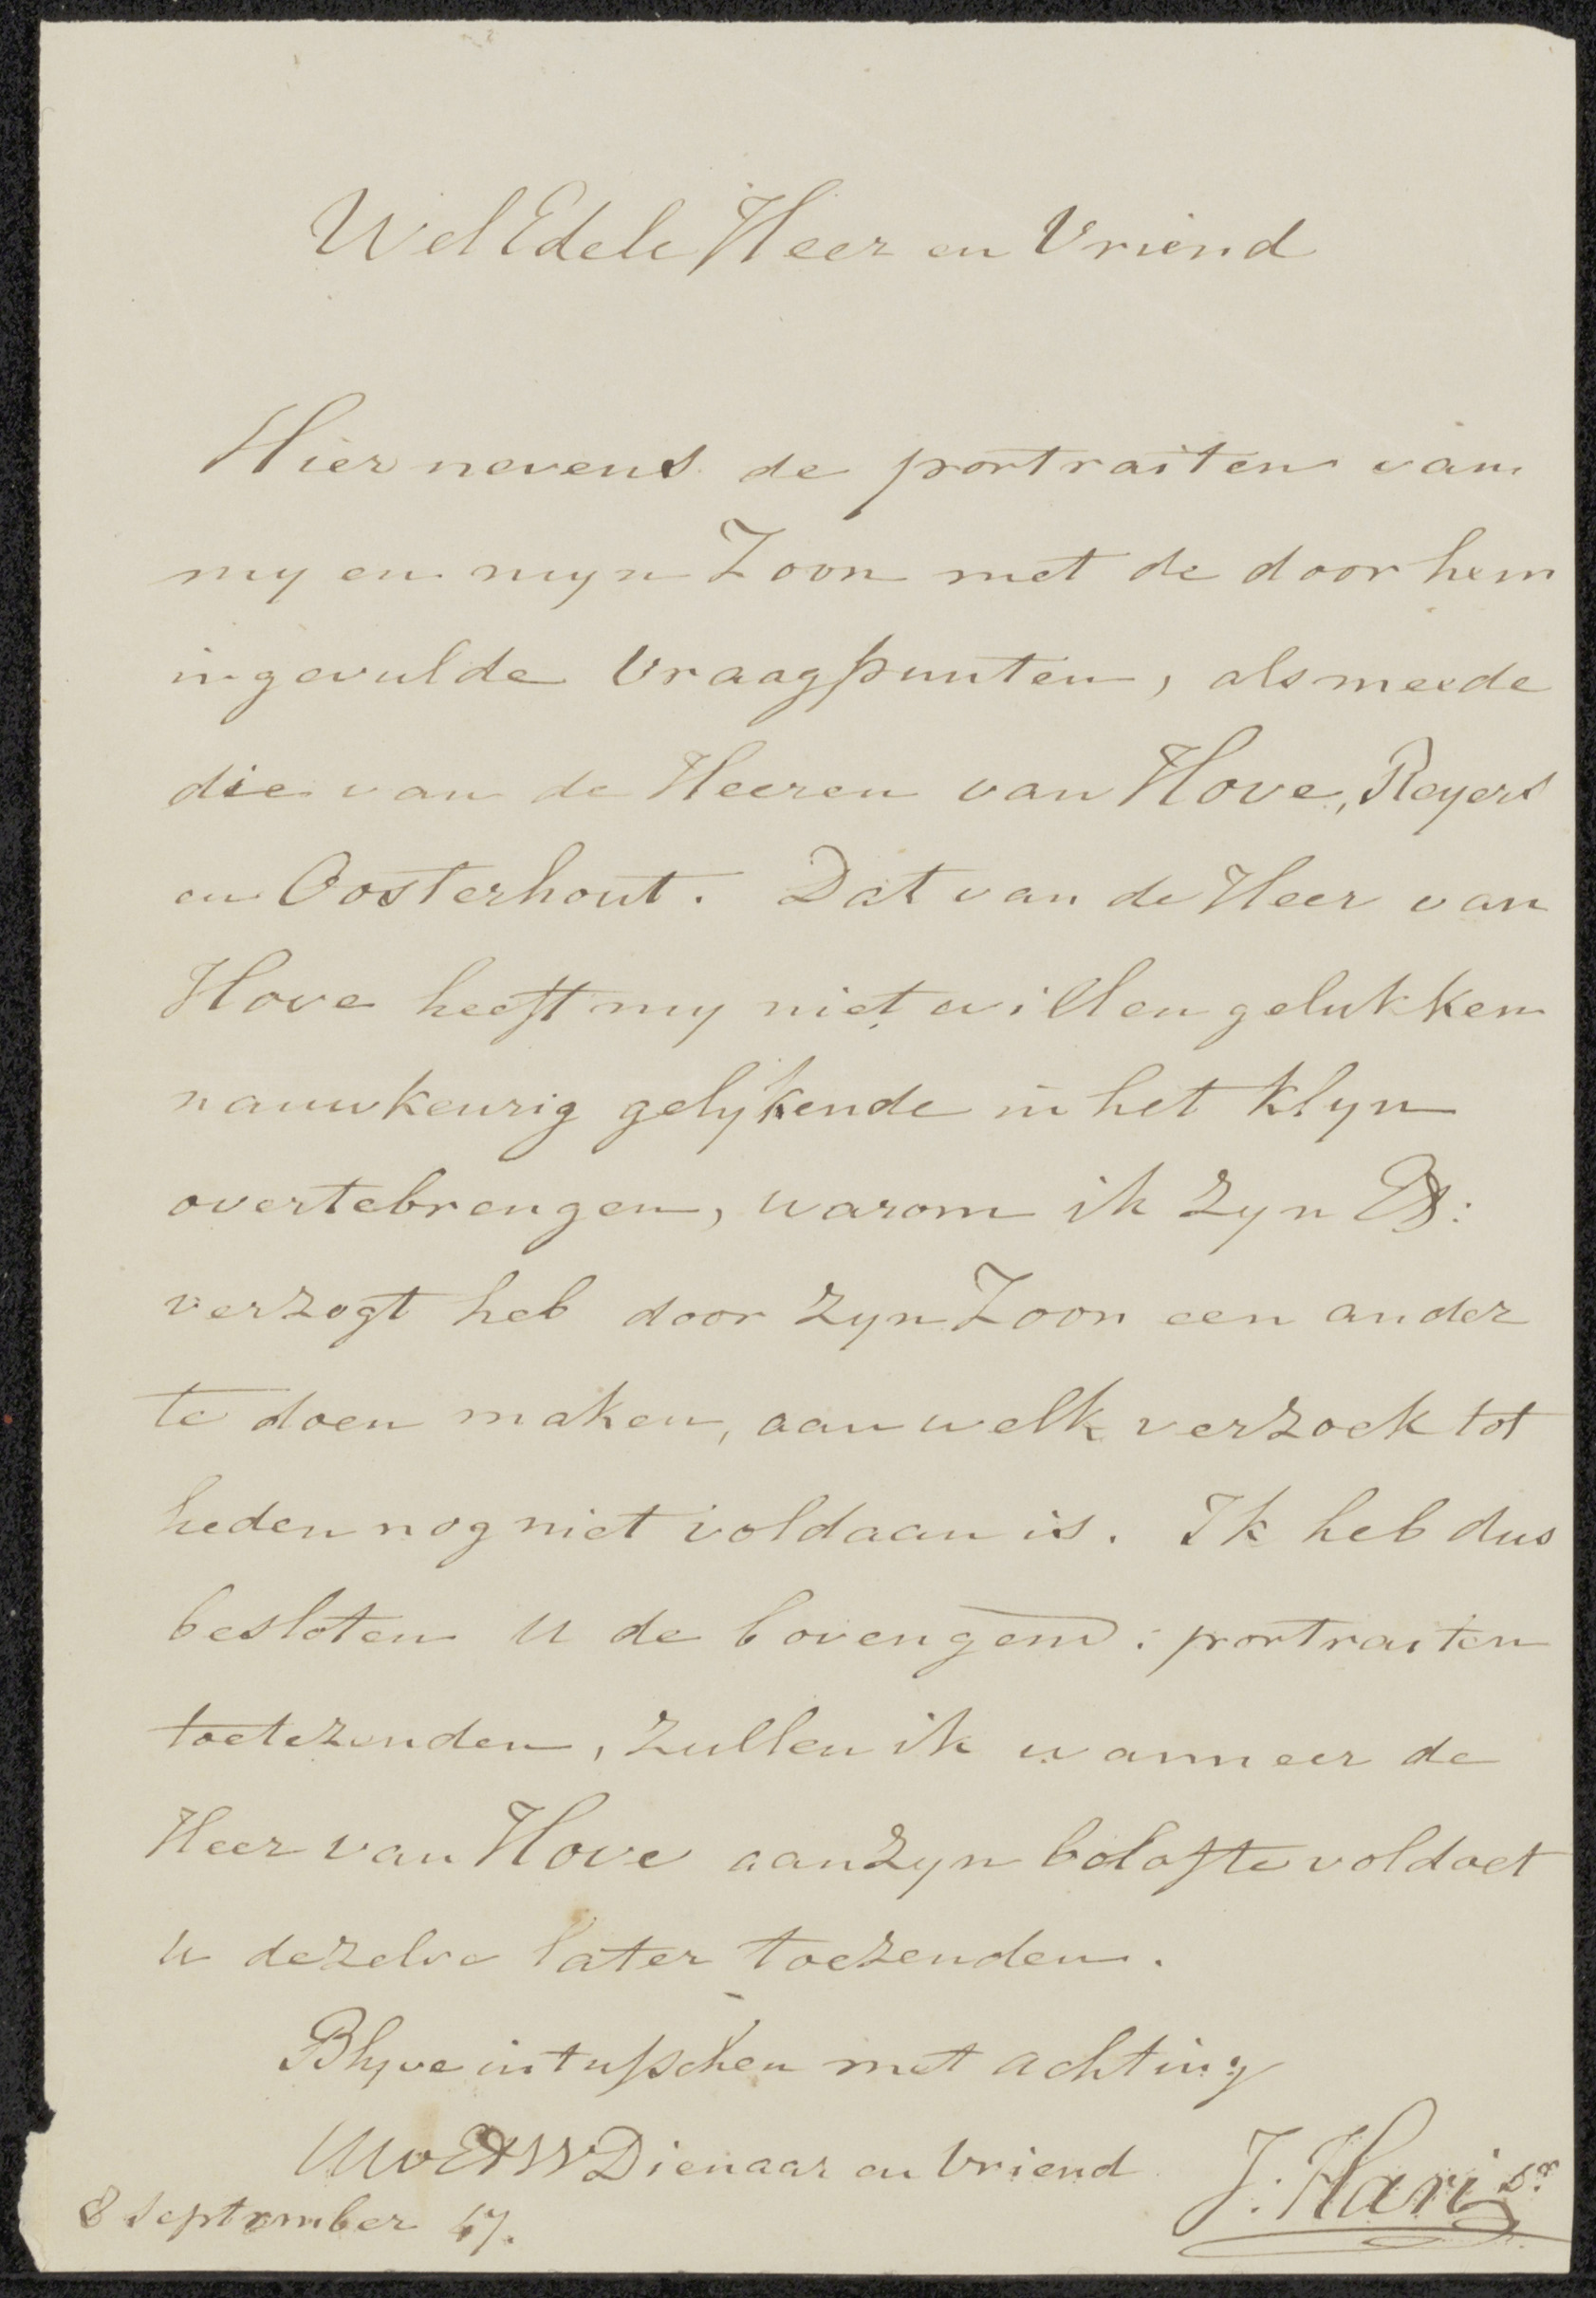 WelEdele Heer en Vriend
Hiernevens de portraiten van
my en myn Zoon met de door hem
ingevulde Vraagpunten, alsmeede
die van de Heeren van Hove, Reyers
en Oosterhout. Dat van de Heer van
Hove heeft my niet willen gelukken
nauwkeurig gelykende in het klyn
overtebrengen, warom ik zyn Ed:
verzogt heb door zyn Zoon een ander
te doen maken, aan welk verzoek tot
heden nog niet voldaan is. Ik heb dus
besloten U de bovengemd: portraiten
toetezenden, zullen ik wanneer de
Heer van Hove aan zyn belofte voldoet
u dezelve later toezenden.
Blyve intusschen met achting
UwEdW Dienaar en Vriend
J. Hari Sr
8 September 47.